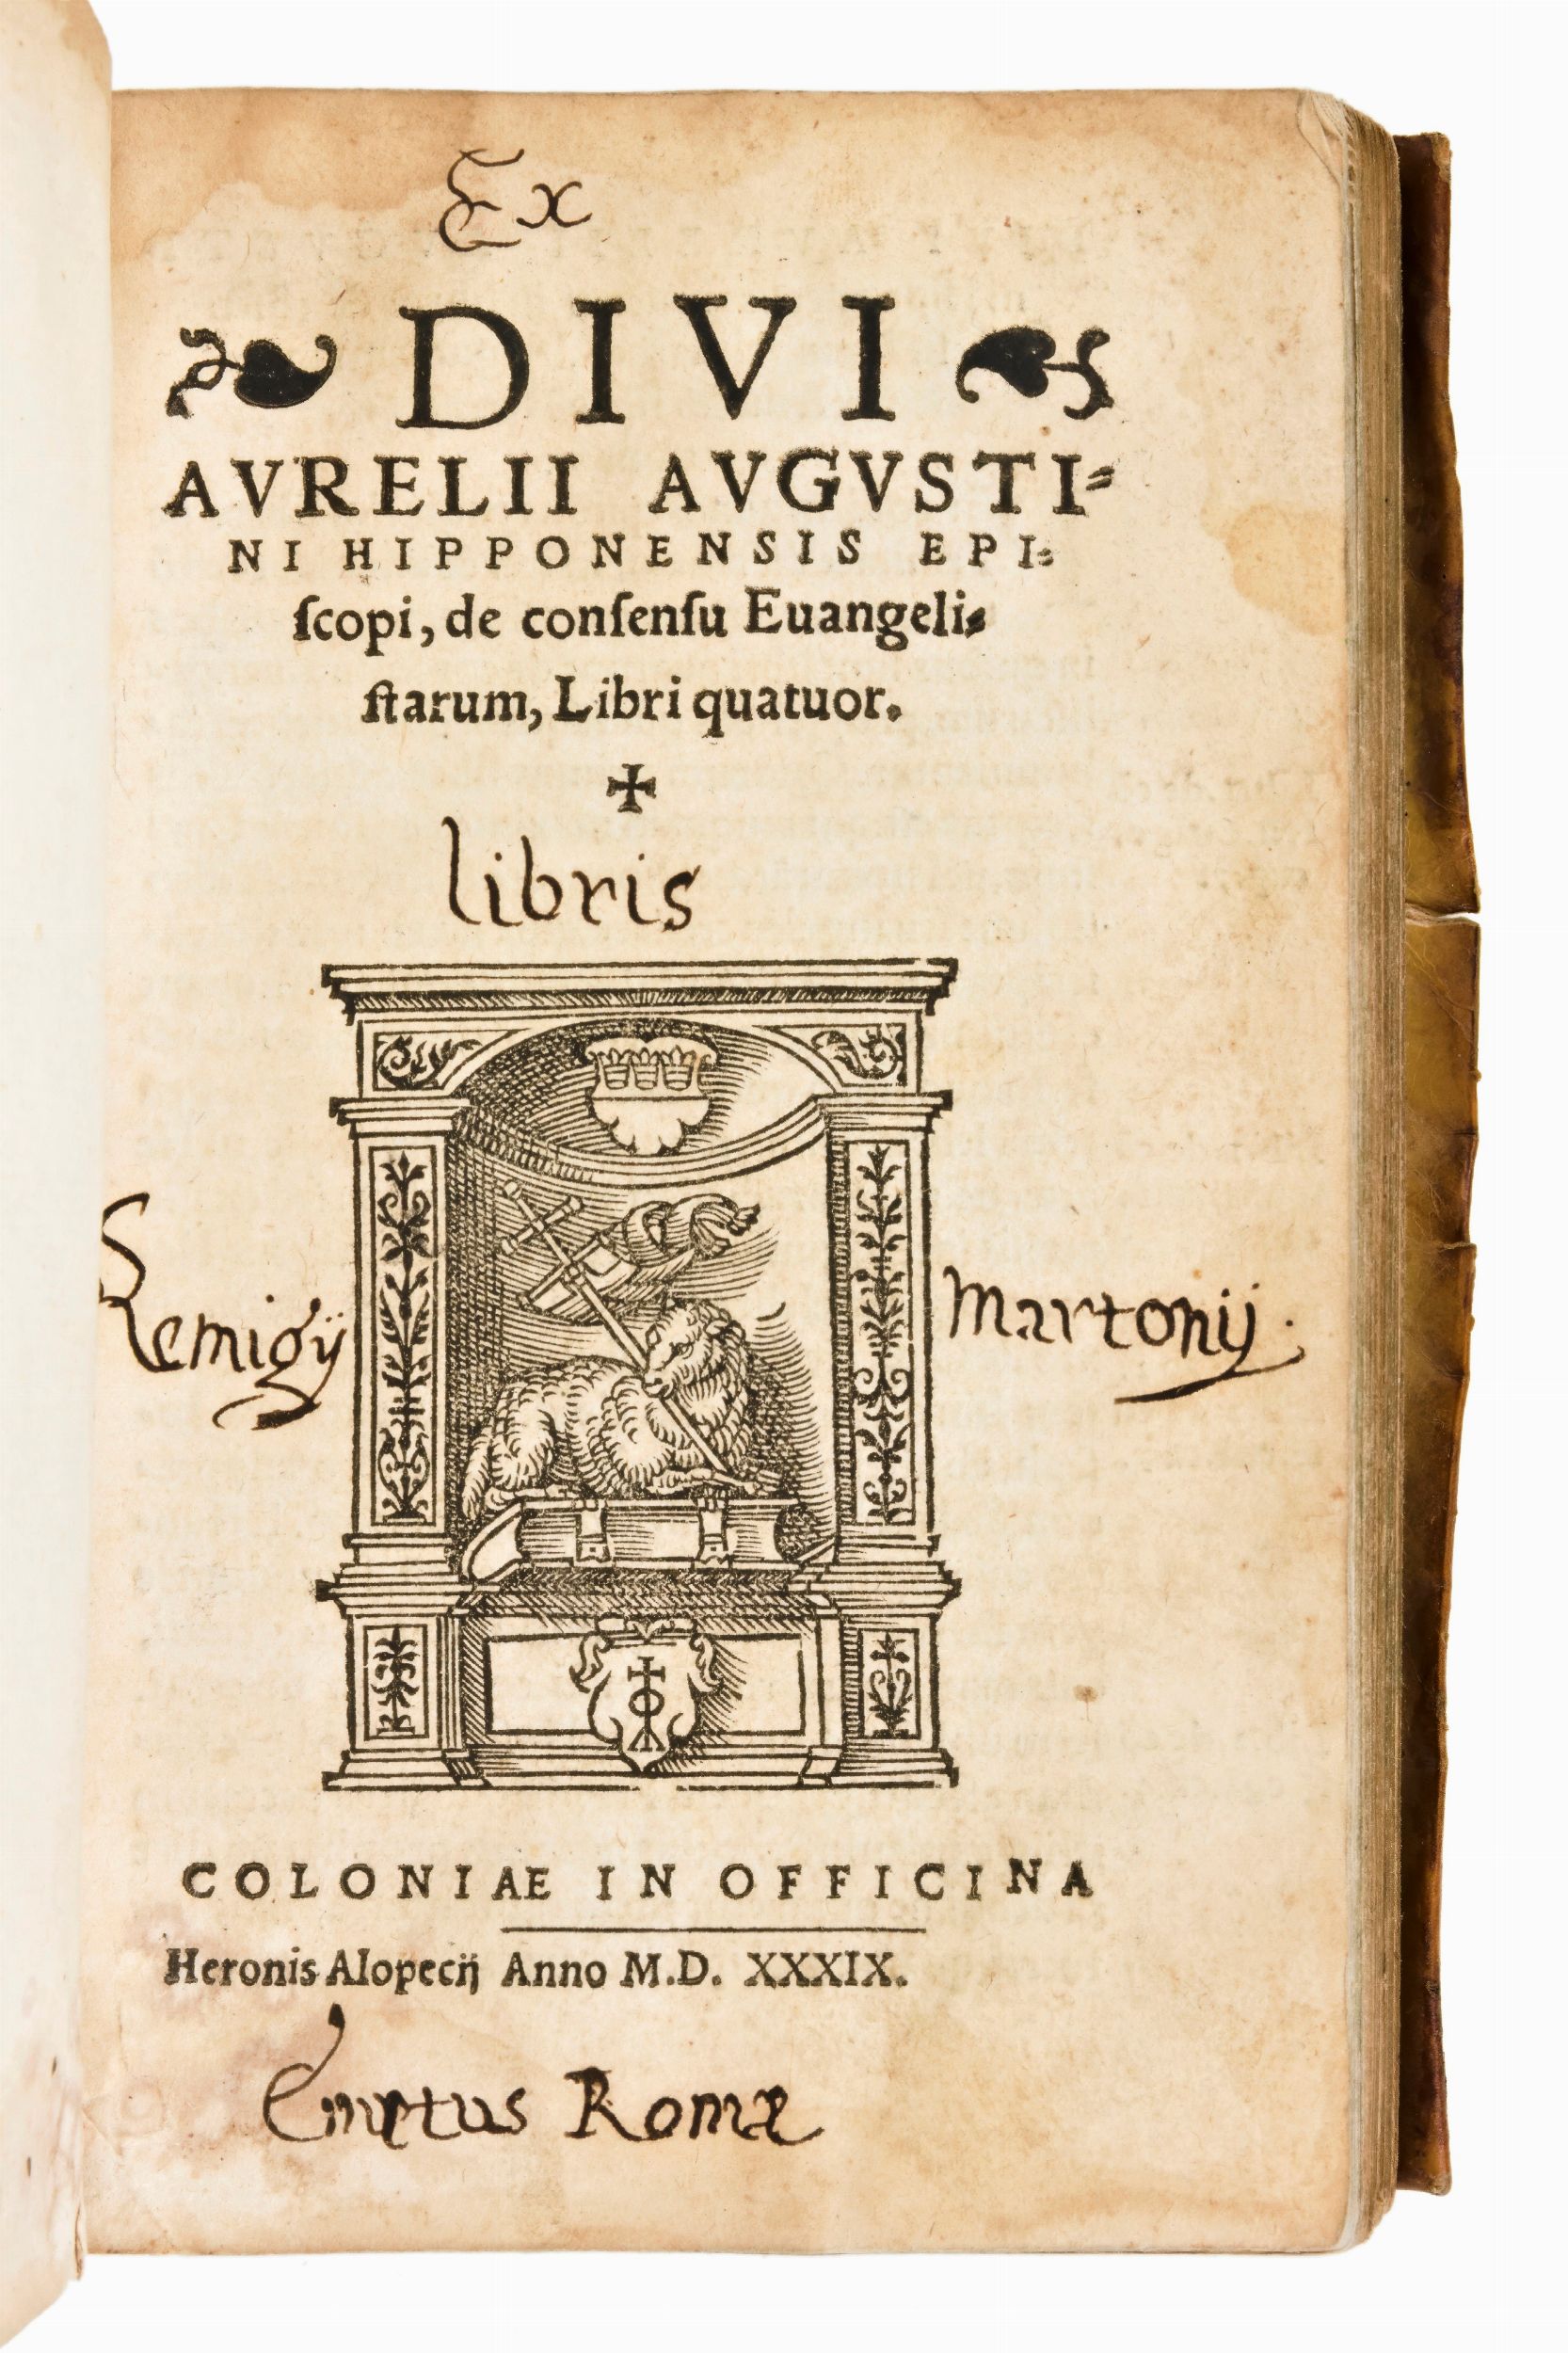 Ex
DIVI
AVRELII AVGVSTI⸗
NI HIPPONENSIS EPI⸗
ſcopi, de conſenſu Euangeli⸗
ſtarum, Libri quatuor.
✠
libris
Remigij Martonij.
COLONIAE IN OFFICINA
Heronis Alopecij Anno M.D. XXXIX.
Emptus Romæ